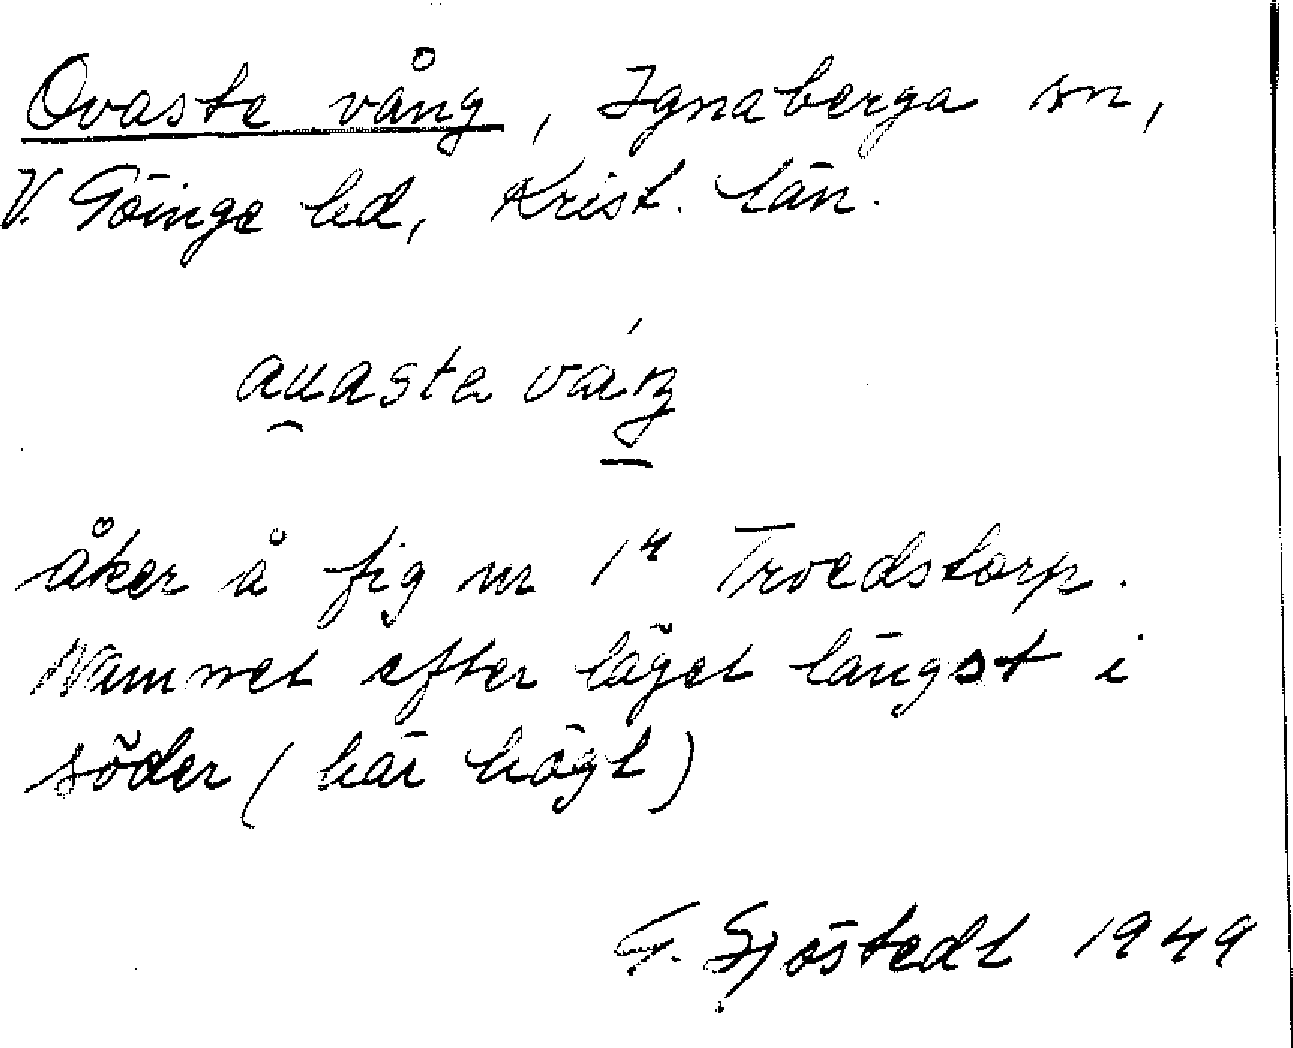 Ovaste vång, Ignaberga sn,
V. Göinge hd, Krist. län.
auaste váŋ
åker å fig nr 1⁴ Troedstorp.
Namnet efter läget längst i
söder (här högt)
G. Sjöstedt 1949